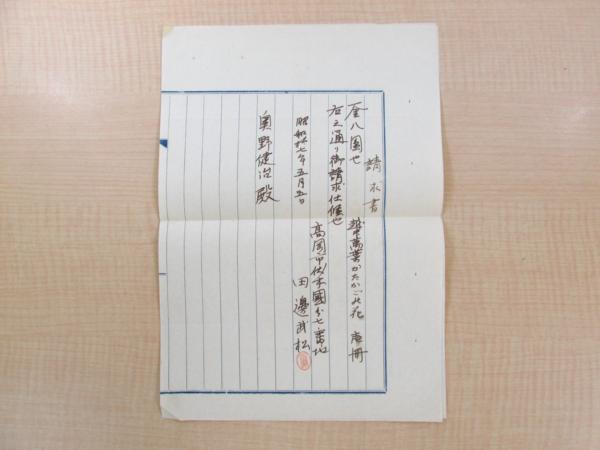 請求書
金八圓也 越中萬葉かたかごの花 壱冊
右之通り御請求仕候也
昭和拾七年五月五日
高岡市伏木國分七番地
田邊武松
奥野健治殿